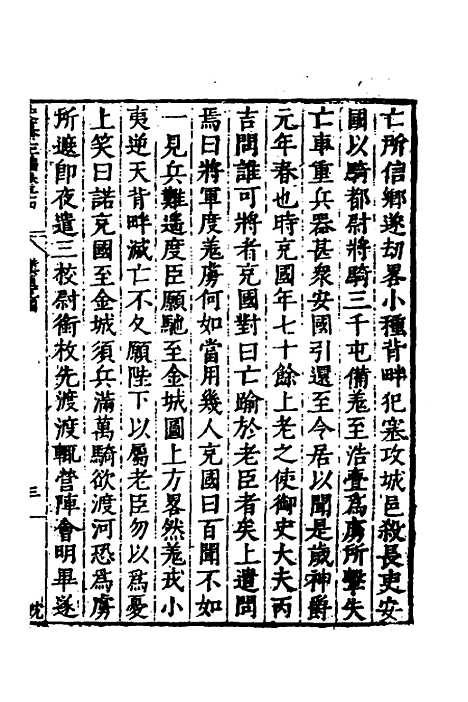 亡所信鄉遂劫畧小種背畔犯塞攻城邑殺長吏安
國以騎都尉將騎三千屯備羗至浩亹爲虜所擊失
亡車重兵器甚衆安國引還至令居以聞是歲神爵
元年春也時充國年七十餘上老之使御史大夫丙
吉問誰可將者充國對曰亡踰於老臣者矣上遣問
焉曰將軍度羗虜何如當用幾人充國曰百聞不如
一見兵難遙度臣願馳至金城圖上方畧然羗戎小
夷逆天背畔滅亡不久願陛下以屬老臣勿以爲憂
上笑曰諾充國至金城須兵滿萬騎欲渡河恐爲虜
所遮卽夜遣三校尉銜枚先渡渡輒營陣會明畢遂
三